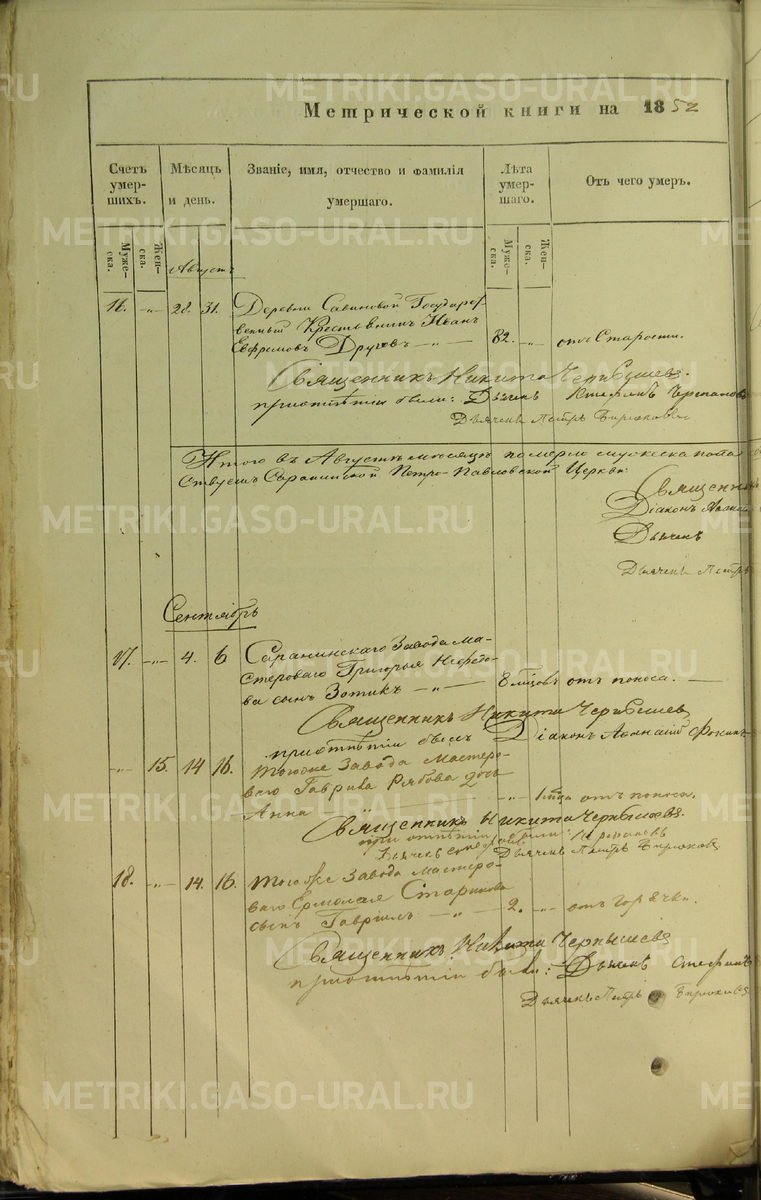 Метрической книги на 1852
Счетъ умер-шихъ.
Мѣсяцъ и день.
Званіе, имя, отчество и фамилія умершаго.
Лѣта умер-шаго.
Отъ чего умеръ.
Муже-ска.
Жен-ска.
Муже-ска.
Жен-ска.
Августъ
16. -„- 28. 31. Деревни Савиновой Государс
венный Крестьянинъ Иванъ
Ефремовъ 82. -„- отъ Старости.
Священникъ Никита Чернышевъ.
при отпѣтіи были: Дьячекъ Стефанъ
Дьячекъ Петръ Бирюковъ
Итого въ Августѣ мѣсяцѣ померло мужеска пола
Саранинской Петро-Павловской Церкви:
Священни
Діаконъ
Дьячекъ
Дьячекъ Петръ
Сентябрь
17. -„- 4. 6 Саранинскаго Завода ма-
стероваго Григорья
ва сынъ Зотикъ -„- 8 мѣсцовъ отъ поноса.
Священникъ Никита Чернышевъ
при отпѣтіи былъ Діаконъ Афанасій Фокинъ
-„- 15. 14 16. Тогоже Завода Мастеро-
ваго Гаврила Рябова дочь
Анна -„- 1 отъ поноса.
Священникъ Никита Чернышевъ.
при отпѣтіи были:
Дьячекъ Стефанъ Черепановъ
Дьячекъ Петръ Бирюковъ
18. -„- 14. 16. Тогоже Завода мастеро-
ваго Ермолая Старикова
сынъ Гавріилъ -„- 2. -„- отъ горячки.
Священникъ Никита Чернышевъ
при отпѣтіи были: Дьячекъ Стефанъ
Дьячекъ Петръ Бирюковъ
METRIKI.GASO-URAL.RU